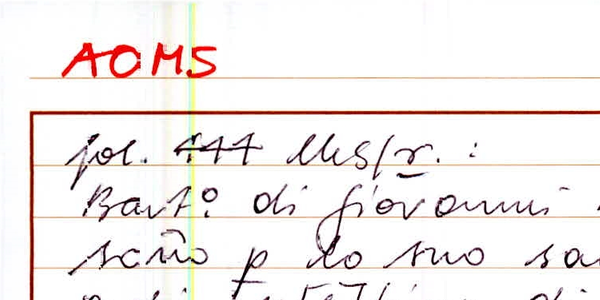 AOMS
fol. 447 MCS/r. :
Bart.º di Giovanni
scño p lo suo sa